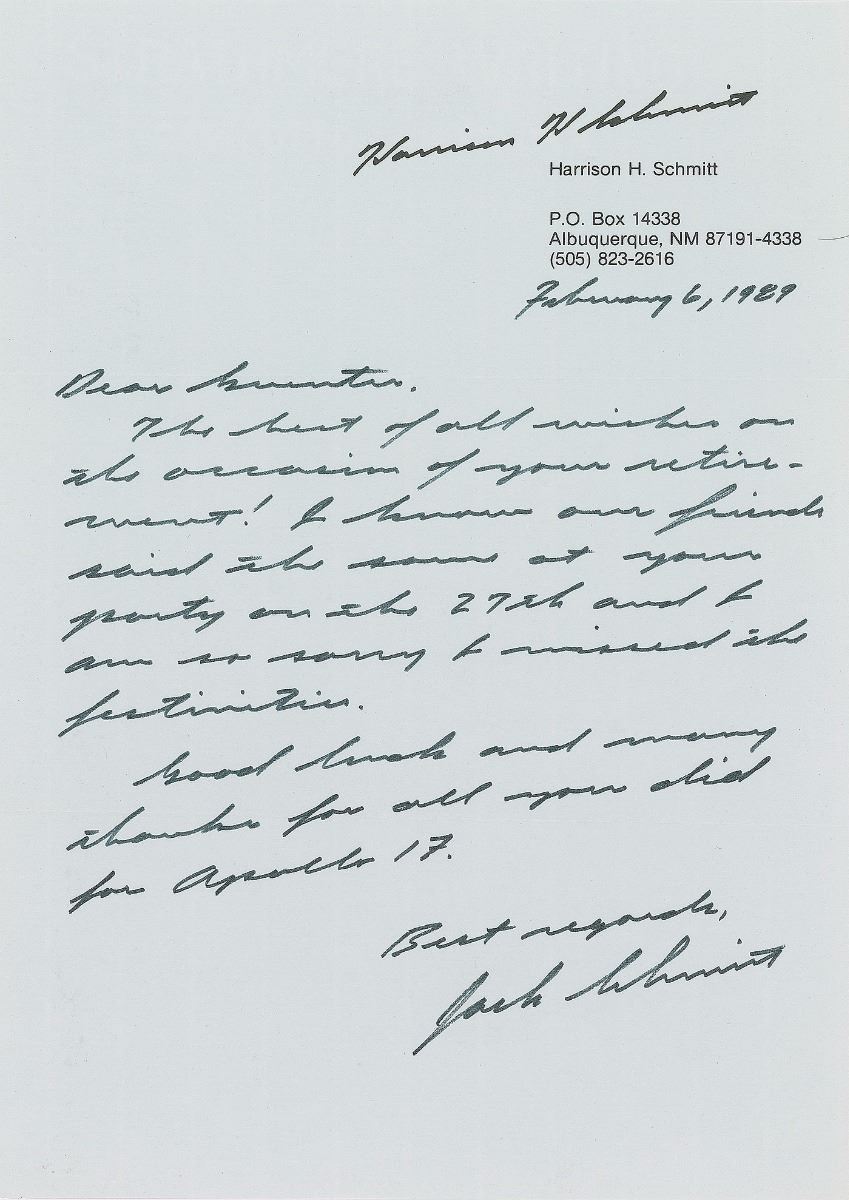 Harrison H Schmitt
Harrison H. Schmitt
P.O. Box 14338
Albuquerque, NM 87191-4338
(505) 823-2616
February 6, 1989
Dear Guenter,
The best of all wishes on
the occasion of your retire-
ment! I know our friends
said the same at your
party on the 27th and I
am so sorry I missed the
festivities.
Good luck and many
thanks for all you did
for Apollo 17.
Best regards,
Jack Schmitt